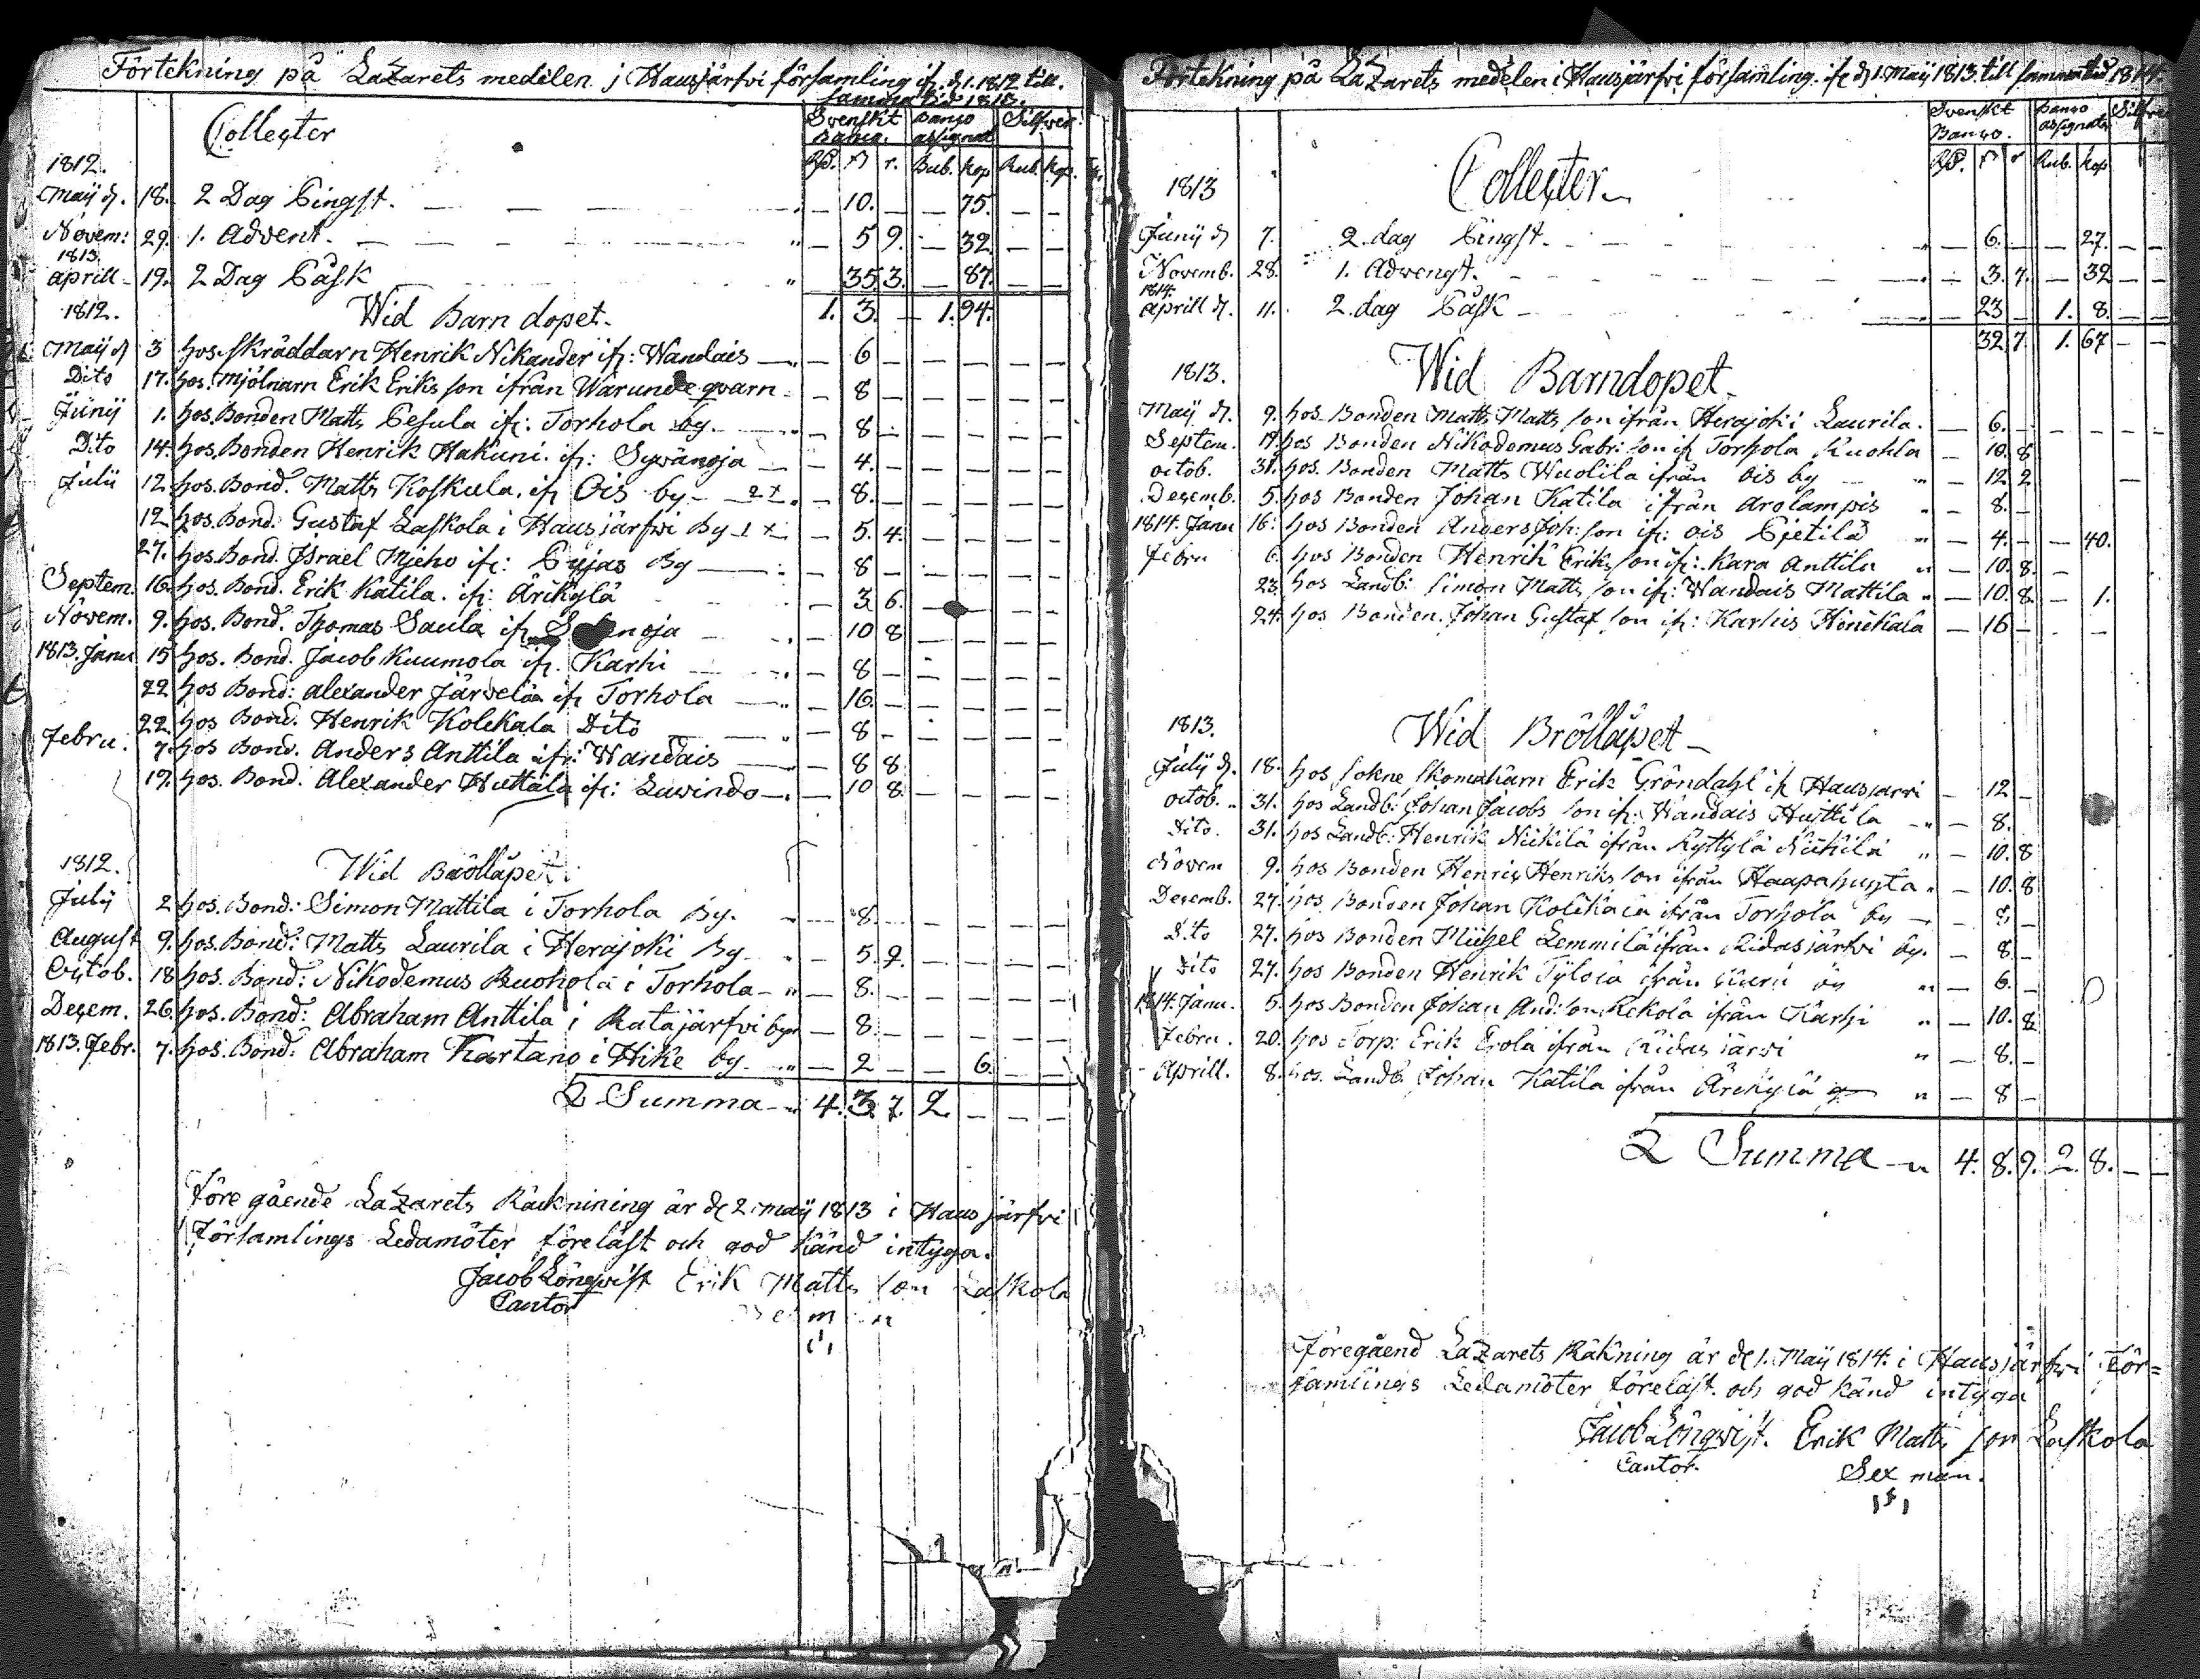 Förtekning på LaZarets medelen j Hausjärfvi församling ifr. d. 1. 1812 till.
samma tid 1813.
Collecter
Svenskt Banco. Banco assignat Silfver
Rd. s r. Rub. kop Rub. kop.
1812.
Maij d. 18. 2 Dag Pingst. — 10. — — 75. — —
Novem: 29. 1. Advent. — 5 9. — 32. — —
1813.
aprill 19. 2 Dag Påsk — 35 3. — 87. — —
1. 3. — 1. 94.
1812. Wid Barn dopet.
Maij d 3 hos. skräddarn Henrik Nikander ifr: Wandais — 6 — — — — —
Dito 17. hos. mjölnarn Erik Eriks son ifrån Warunde qvarn — 8 — — — — —
Junij 1. hos. Bonden Matts Pesula ifr. Torhola by. — 8 — — — — —
Dito 14. hos. Bonden Henrik Hakuni. ifr: Sywänoja — 4. — — — — —
Julii 12 hos. Bond. Matts Koskula. ifr Ois by — 2 + — 8. — — — — —
12 hos. Bond. Gustaf Laskola i Hausjärfvi By 1 + — 5. 4. — — — —
27. hos. Bond. Jsrael Mieho ifr: Pujas By — 8 — — — — —
Septem. 16. hos. Bond. Erik Katila. ifr: Ärikylä — 3 6. — — — —
Novem. 9. hos. Bond. Thomas Saula ifr noja — 10 8 — — — —
1813. Janu 15 hos. Bond. Jacob Kuumola ifr. Karhi — 8 — — — — —
22 hos Bond: Alexander Järvelä ifr Torhola — 16. — — — — —
22 hos Bond. Henrik Kolckala Dito — 8 — — — — —
Febru. 7. hos Bond. Anders Anttila ifr: Wandais — 8 8 —
19. hos. Bond. Alexander Huttala ifr: Luwindo — 10 8. — — — —
1812. Wid Brölläpet.
July 2 hos. Bond: Simon Mattila i Torhola By. — 8. — — — — —
August 9. hos. Bond: Matts Laurila i Herajoki By — 5. 9. — — — —
Octob. 18 hos. Bond: Nikodemus Ruohola i Torhola — 8. — — — — —
Decem. 26. hos. Bond: Abraham Anttila i Ratajärfvi by — 8. — — — — —
1813. Febr. 7. hos. Bond: Abraham Kartano i Hike by — 2 — — 6. — —
Summa — 4. 3 7. 2. — — —
Före gående LaZarets Räcknining är d 2. maij 1813 i Hausjärfvi
Församlings Ledamöter föreläst och god känd intyga.
Jacob Lönqvist Erik Matts son Laskola
Cantor
Förtekning på LaZarets medelen i Hausjärfvi församling. ifr d 1. Maij 1813. till samma tid 1814.
Svenskt Banco. Banco assignat Silfver
Rd. s r Rub. kop
1813 Collecter
Junij d 7. 2. dag Pingst. — 6. — — 27. — —
Novemb. 28. 1. Advengt. — 3. 7. — 32 — —
1814.
aprill d. 11. 2. dag Påsk — 23 — 1. 8. — —
32 7. 1. 67 — —
1813. Wid Barndopet
Maij d. 9. hos Bonden Matts Matts son ifrån Herajoki Laurila. — 6. — — — — —
Septem. 19. hos Bonden Nikodemus Gabr: son ifr Torhola Ruohla — 10. 8
octob. 31. hos. Bonden Matts Wuolila ifrån Ois by — 12 2 —
Decemb. 5. hos Bonden Johan Katila ifrån Arolampis — 8. —
1814. Janu 16. hos Bonden Anders Joh: son ifr: ois Pietilä — 4. — — 40.
Febru 6. hos Bonden Henrik Eriks son ifr: Kara Anttila — 10. 8. —
23. hos Landb: Simon Matts son ifr: Wandais Mattila — 10. 8. — 1.
24. hos Bonden. Johan Gustaf son ifr: Karhis Hinckala — 16 — — —
1813. Wid Brölläpet
July d. 18. hos sokne skomakarn Erik Gröndahl ifr Hausjarvi — 12 —
octob. 31. hos Landb: Johan Jacobs son ifr: Wandais Huttila — 8.
Dito. 31. hos Landb: Henrik Niikilä ifrån Ryttylä Niikilä — 10. 8
Novem 9. hos Bonden Henric Henriks son ifrån Haapahujta — 10. 8
Decemb. 27. hos Bonden Johan Kolckala ifrån Torhola by — 8. —
Dito 27. hos Bonden Michel Lemmilä ifrån Ridasjärfvi by. — 8. —
Dito 27. hos Bonden Henrik Tylola ifrån — 6. —
1814. Janu. 5. hos Bonden Johan And: son Kekola ifrån Karhi — 10. 8
Febru. 20. hos Torp: Erik Erola ifrån Ridas järvi — 8. —
Aprill. 8. hos. Landb. Johan Katila ifrån Ärikylä — 8 —
Summa — 4. 8. 9. 2 8. — —
Föregåend LaZarets Räkning är d 1. Maij 1814. i Hausjärfvi För=
samlings Ledamöter föreläst och god känd intyga
Jacob Lönqvist. Erik Matts son Laskola
Cantor. Sex man.